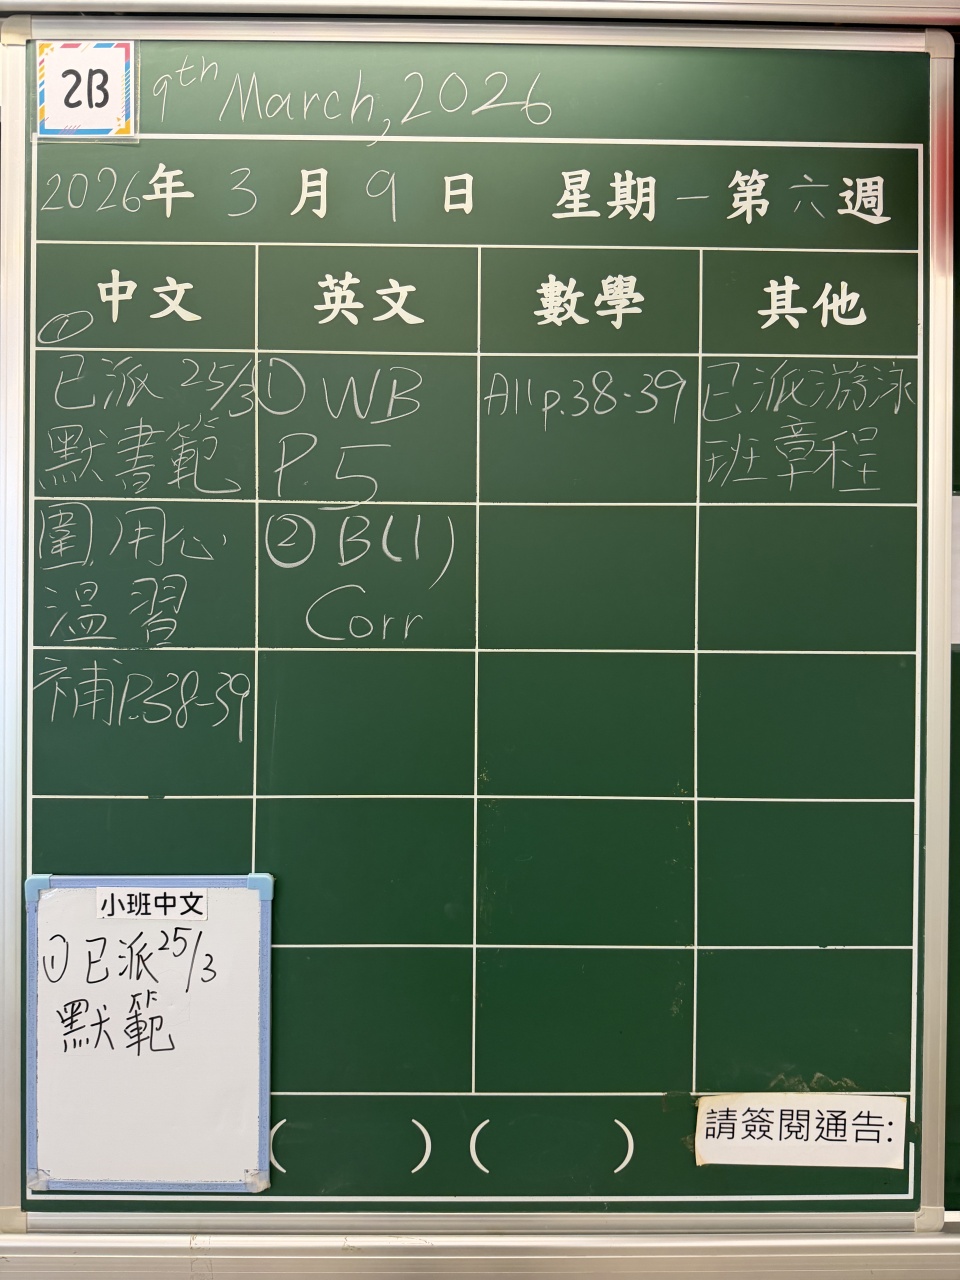 2B
9th March, 2026
2026年 3 月 9 日 星期一 第六週
中文
英文
數學
其他
①
已派 25/3
默書範
圍,用心
溫習
補P.38-39
① WB
P.5
② B(1)
Corr
A11 p.38-39
已派游泳
班章程
小班中文
① 已派 25/3
默範
( ) ( )
請簽閱通告: